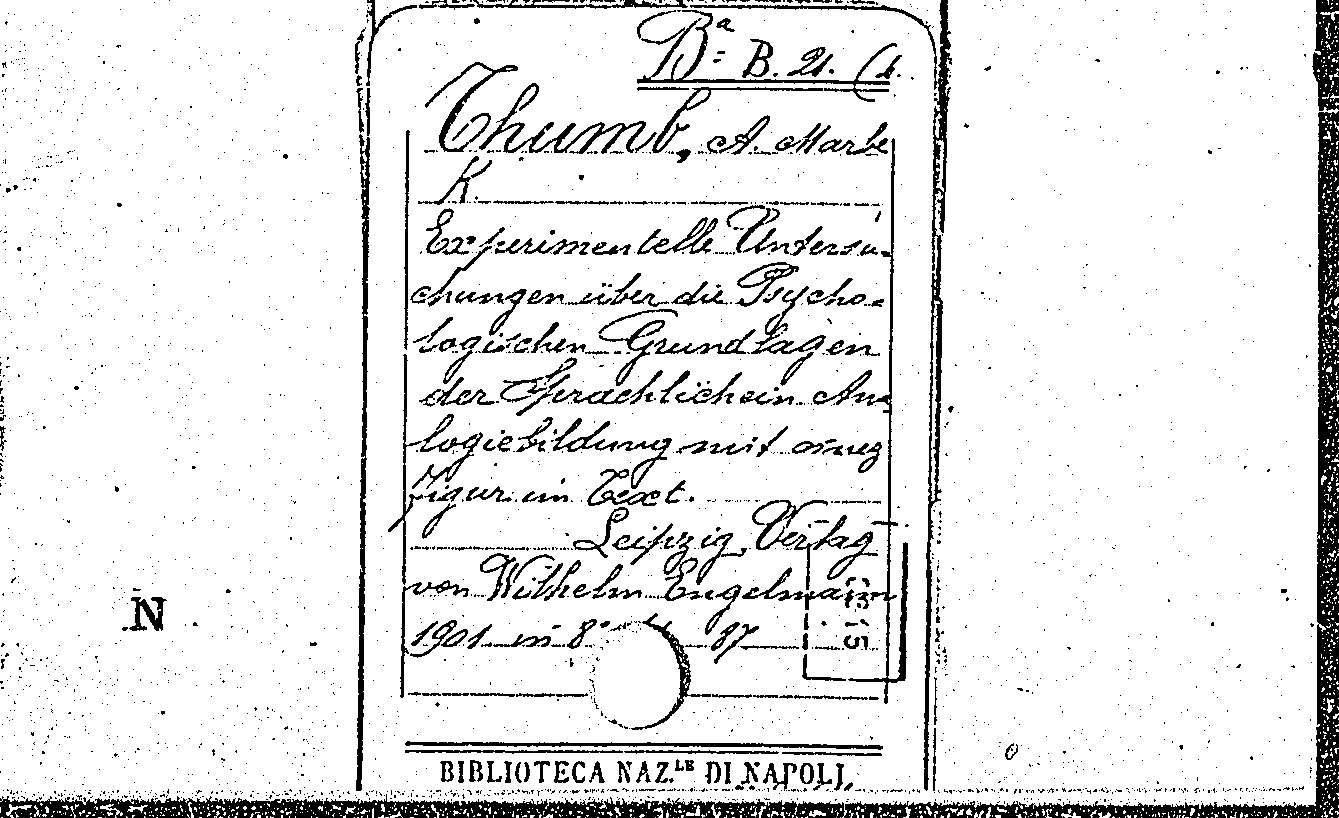 Bª B. 21. (1.
Thumb, A. Marbe
K.
Experimentelle Untersu-
chungen über die Psycho-
logischen Grundlagen
der Sprachlichein An-
logiebildung mit
Figur im Text.
Leipzig, Verlag
von Wilhelm Engelmann
1901 in 8° 87
N
BIBLIOTECA NAZ.LE DI NAPOLI.